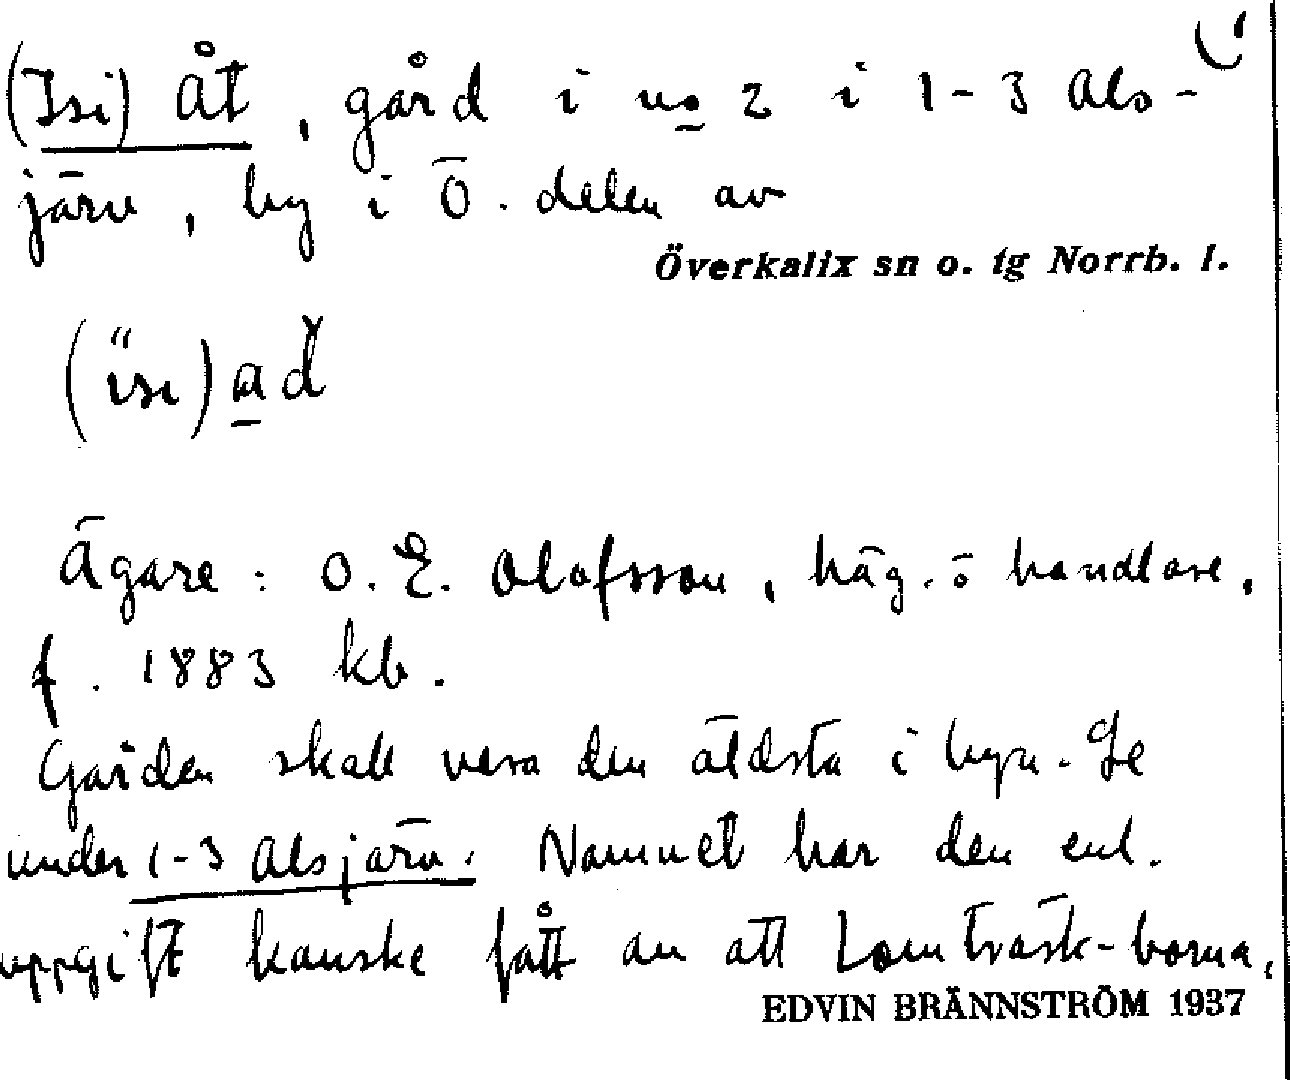 (Isi) åt, gård i no 2 i 1-3 Als-
järv, by i Ö. delen av
Överkalix sn o. tg Norrb. l.
(ïsi) ad̆
Ägare: O. E. Olofsson, häg. o handlare,
f. 1883 kb.
Gården skall vara den äldsta i byn. Se
under 1-3 Alsjärv. Namnet har den enl.
uppgift kanske fått av att Lomträsk-borna,
EDVIN BRÄNNSTRÖM 1937